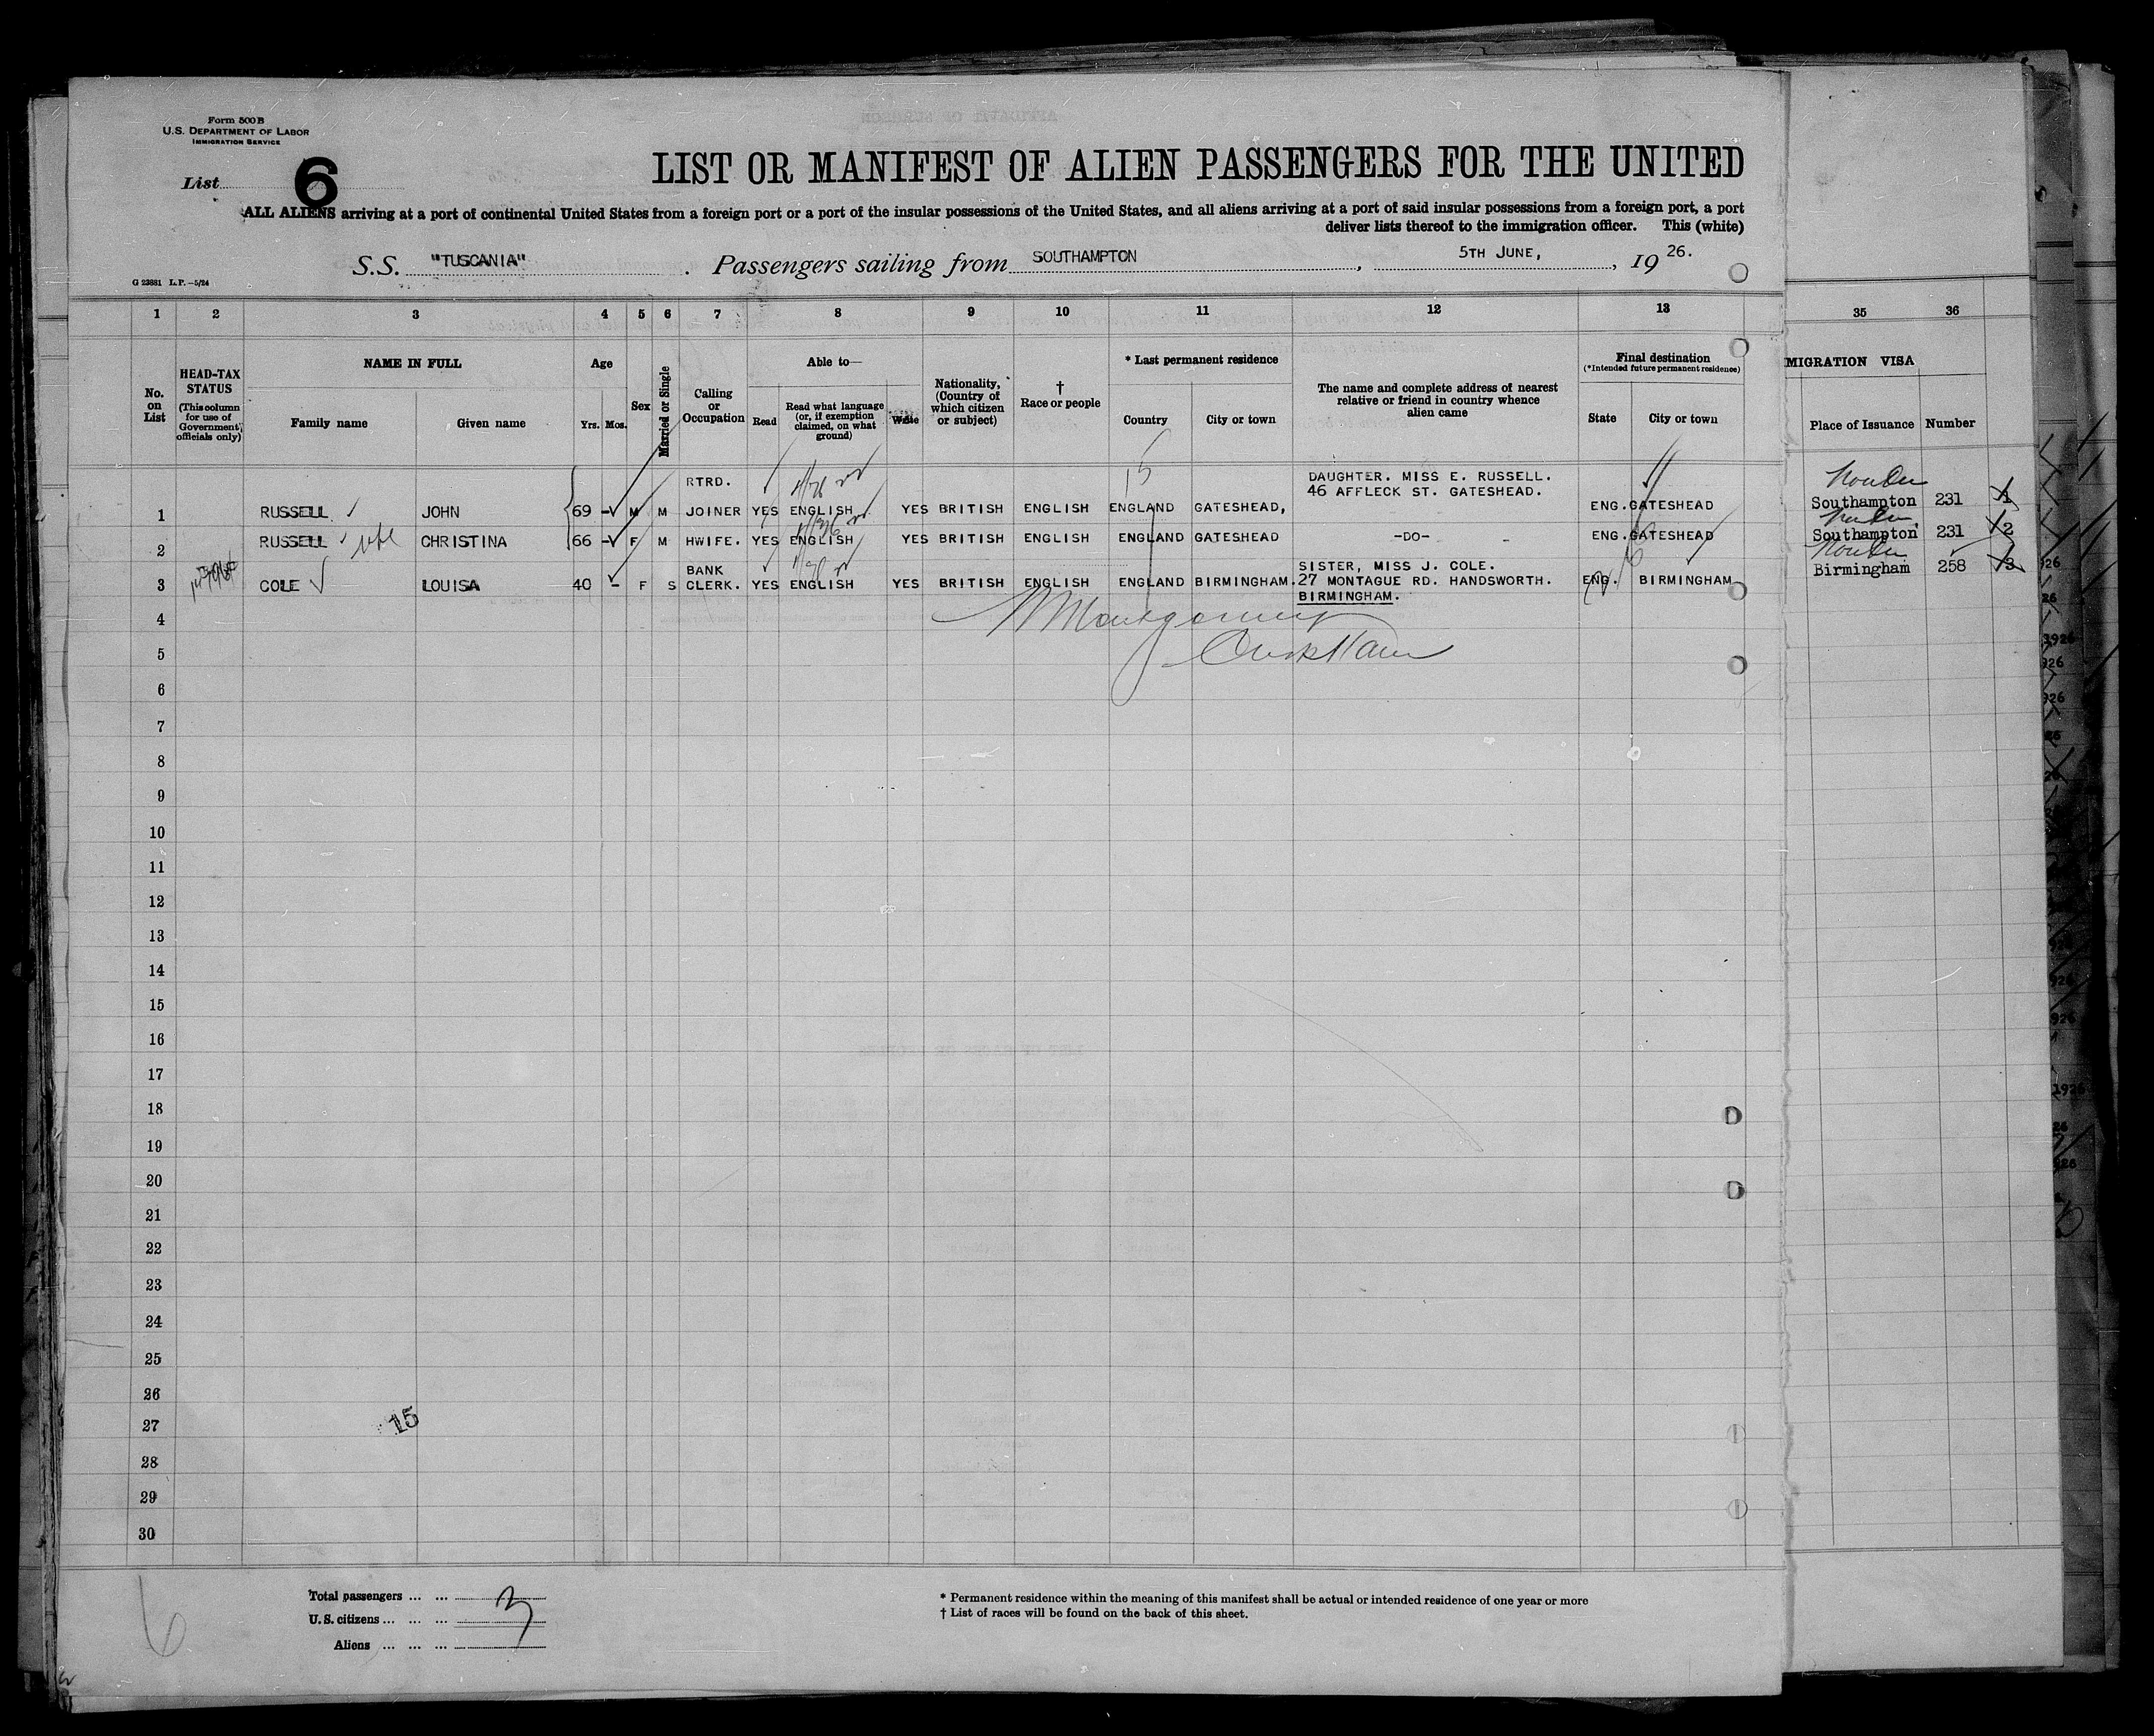 Form 500 B
U.S. DEPARTMENT OF LABOR
IMMIGRATION SERVICE
List 6
LIST OR MANIFEST OF ALIEN PASSENGERS FOR THE UNITED
ALL ALIENS arriving at a port of continental United States from a foreign port or a port of the insular possessions of the United States, and all aliens arriving at a port of said insular possessions from a foreign port, a port
deliver lists thereof to the immigration officer. This (white)
S.S. "TUSCANIA" . Passengers sailing from SOUTHAMPTON , 5TH JUNE, , 19 26.
G 23881 L.P.—5/24
1 2 3 4 5 6 7 8 9 10 11 12 13 35 36
No. on List
HEAD-TAX STATUS
(This column for use of Government officials only)
NAME IN FULL
Family name Given name
Age
Yrs. Mos.
Sex
Married or Single
Calling or Occupation
Able to—
Read
Read what language (or, if exemption claimed, on what ground)
Write
Nationality, (Country of which citizen or subject)
† Race or people
* Last permanent residence
Country City or town
The name and complete address of nearest relative or friend in country whence alien came
Final destination
(*Intended future permanent residence)
State City or town
MIGRATION VISA
Place of Issuance Number
RTRD. DAUGHTER. MISS E. RUSSELL.
46 AFFLECK ST. GATESHEAD.
1 RUSSELL JOHN 69 - M M JOINER YES ENGLISH YES BRITISH ENGLISH ENGLAND GATESHEAD, ENG. GATESHEAD Southampton 231 1
2 RUSSELL wife CHRISTINA 66 - F M HWIFE. YES ENGLISH YES BRITISH ENGLISH ENGLAND GATESHEAD -DO- - ENG. GATESHEAD Southampton 231 2
BANK SISTER, MISS J. COLE.
3 COLE LOUISA 40 - F S CLERK. YES ENGLISH YES BRITISH ENGLISH ENGLAND BIRMINGHAM. 27 MONTAGUE RD. HANDSWORTH. ENG. BIRMINGHAM Birmingham 258 3
BIRMINGHAM.
4 Montgomery
5
6
7
8
9
10
11
12
13
14
15
16
17
18
19
20
21
22
23
24
25
26
27 15
28
29
30
Total passengers ... ... 3
U.S. citizens ... ... ...
Aliens ... ... ...
* Permanent residence within the meaning of this manifest shall be actual or intended residence of one year or more
† List of races will be found on the back of this sheet.
6